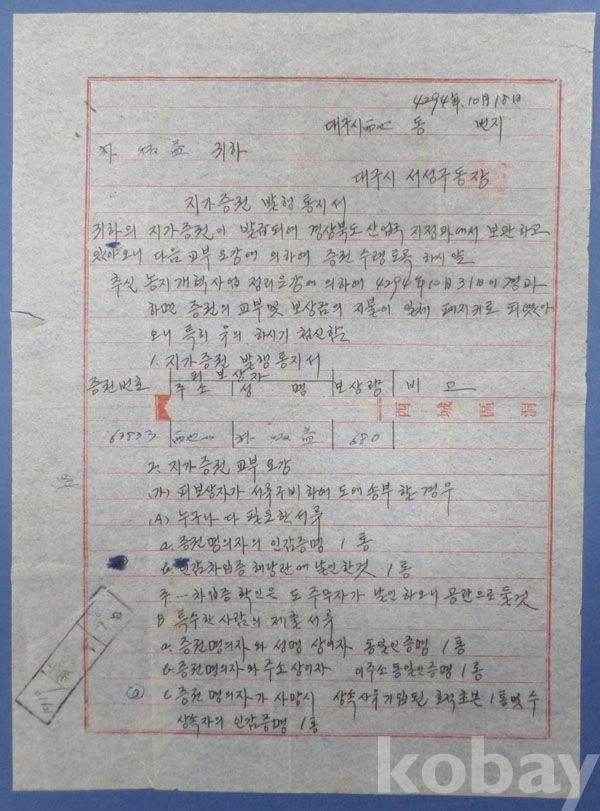 4294年.10月18日
대구시 동 번지
귀하
대구시 서성구동장
지가증권 발행 통지서
귀하의 지가증권이 발급되어 경상북도 산업국 지정과에서 보관하고
있아오니 다음 교부 요강에 의하여 증권 수령토록 하시앞
추신 농지개혁사업 정리요강에 의하여 4294年10月31日이 경과
하면 증권의 교부및 보상금의 지불이 일체 폐지키로 되였아
오니 특히 유의 하시기 첨신함
1. 지가증권 발행통지서
증권번호 피보상자 주소 성명 보상량 비고
西城區洞
680
2. 지가증권 교부 요강
(가) 피보상자가 서류구비하여 도에 송부할 경우
(A) 누구나 다 필요한 서류
a. 증권명의자의 인감증명 1통
b. 인감차입증 해당란에 날인한것 1통
주…차입증 확인은 도 주무자가 날인하오니 공란으로 둘것
B 특수한 사람의 제출서류
a. 증권명의자와 성명 상이자 동일인증명 1통
b. 증권명의자와 주소상이자 이주소동일인증명 1통
C 증권명의자가 사망시 상속사유기입된 호적초본 1통및 수
상속자의 인감증명 1통
kobay